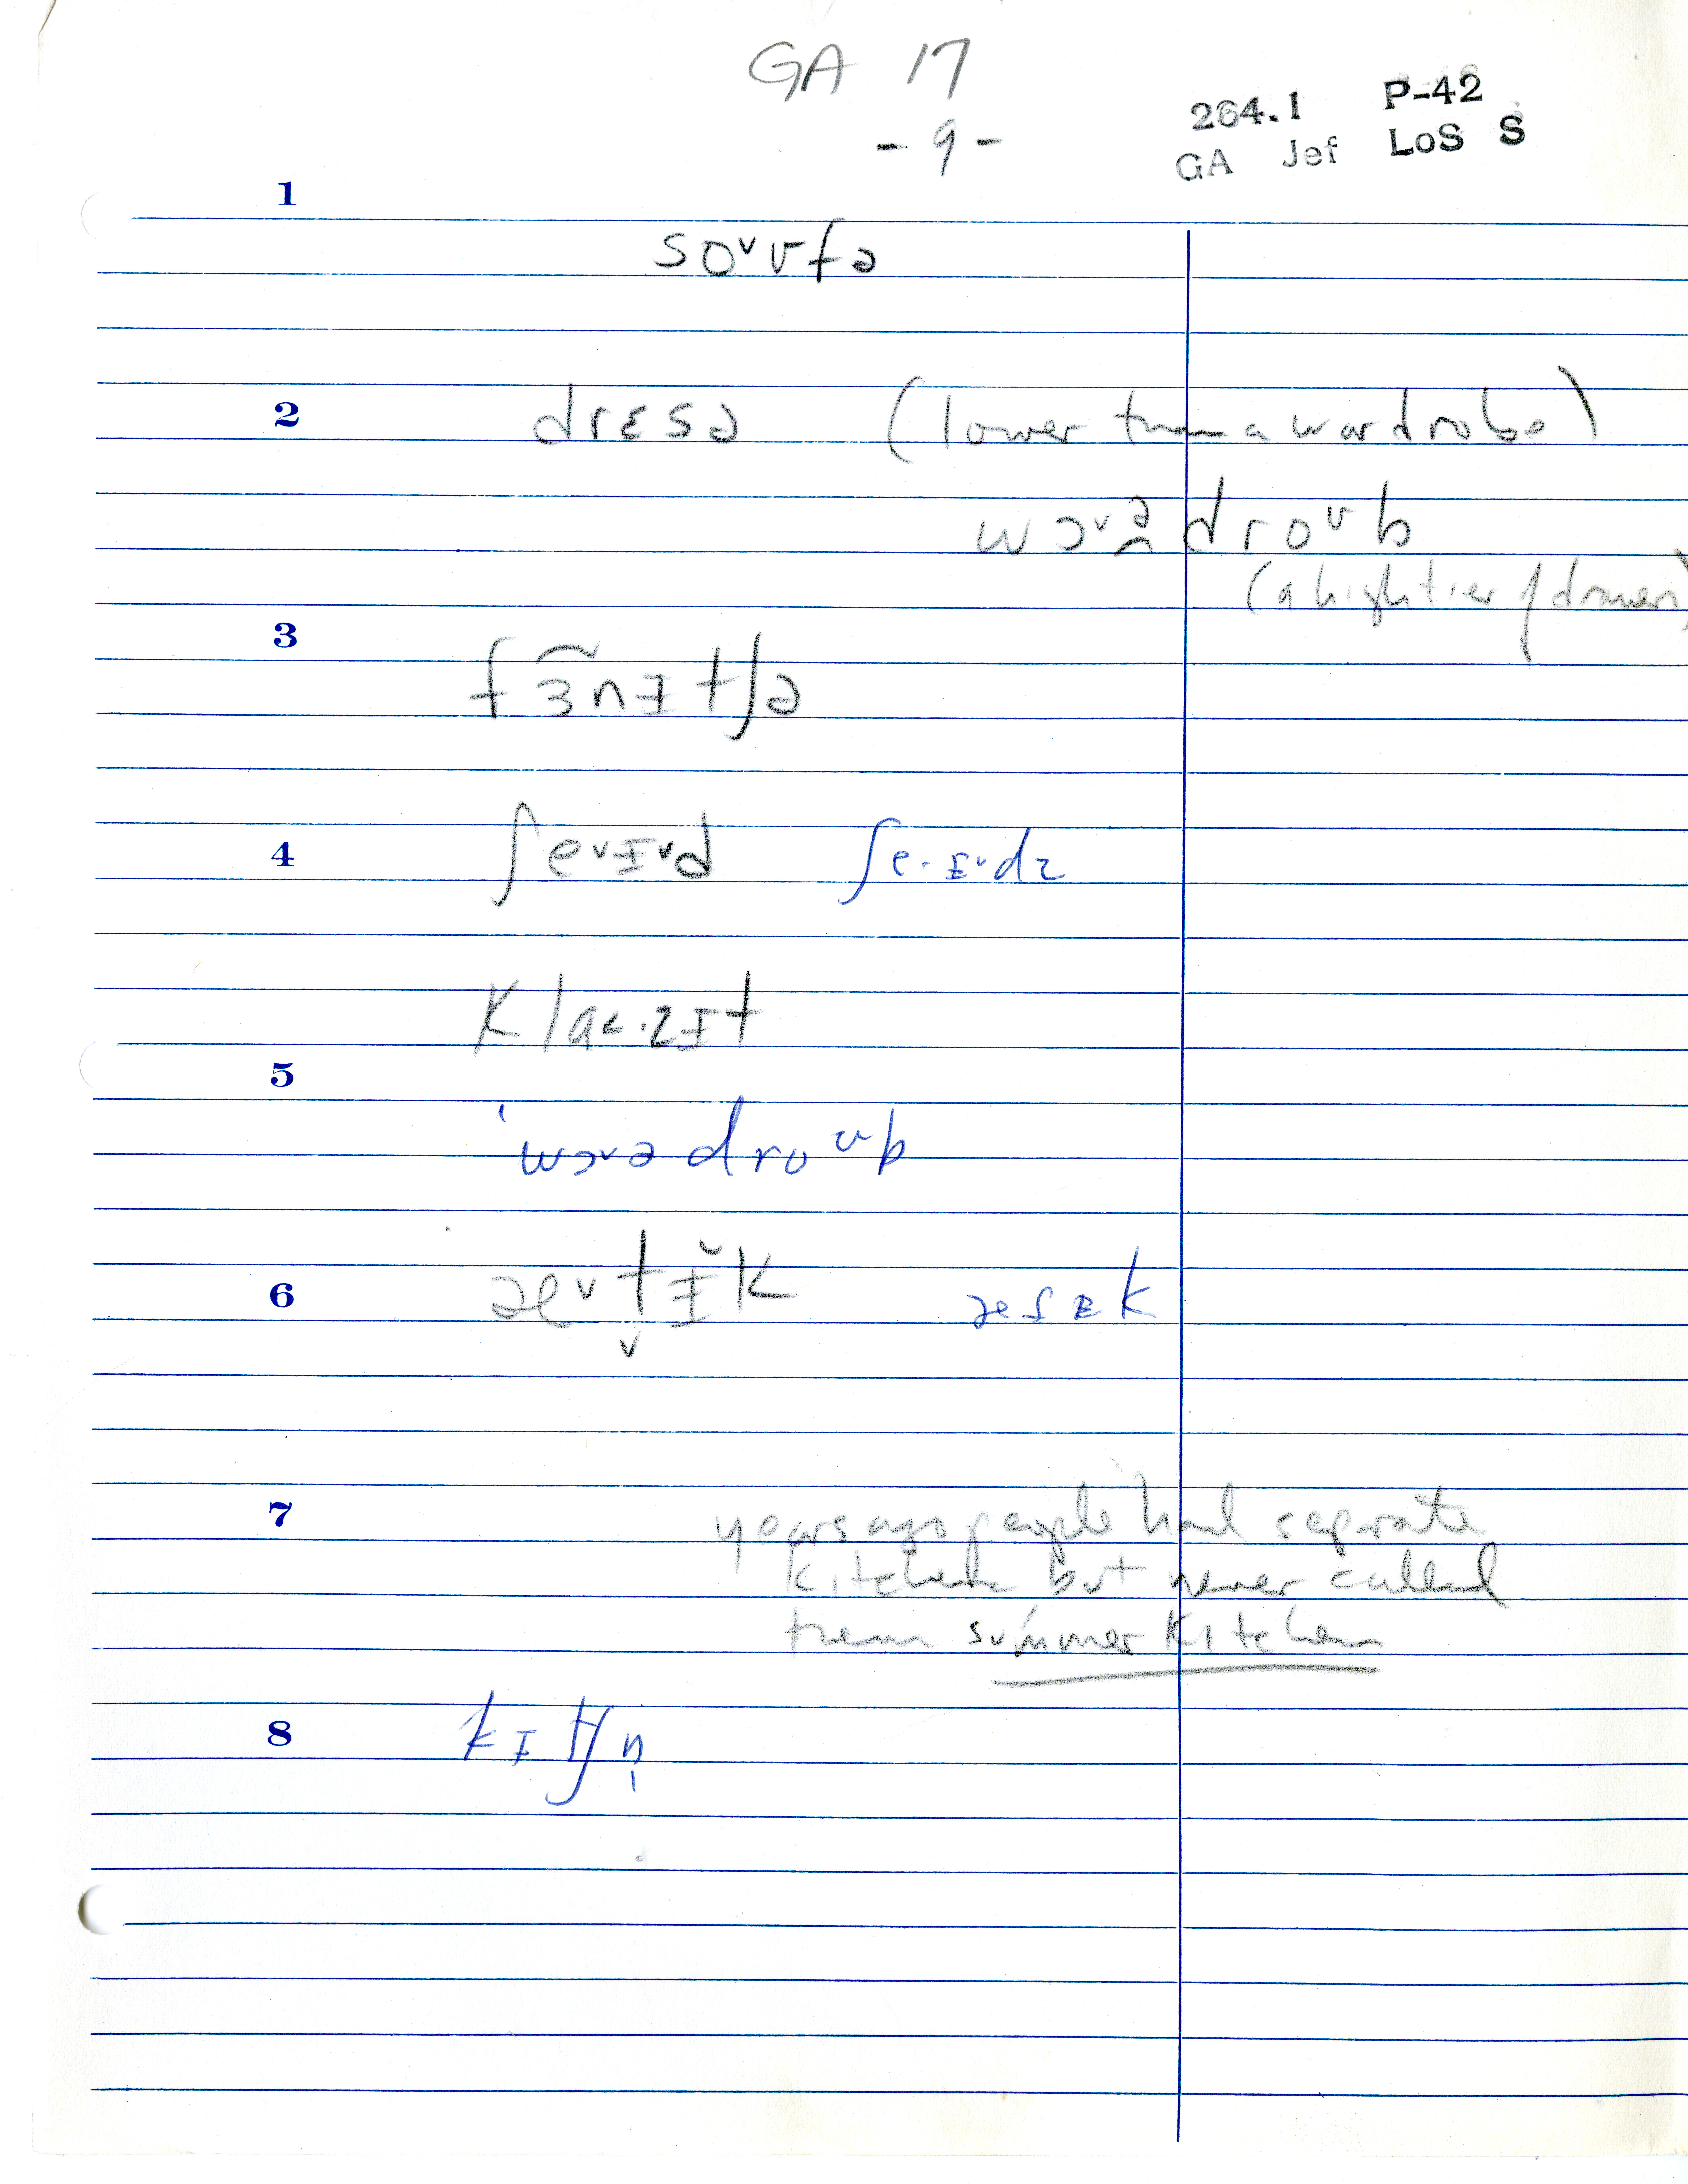 GA 17
264.1 P-42
- 9 -
GA Jef LoS S
1
soᵛʊfə
2 drɛsə (lower than a wardrobe)
wɔᵛə̯droᶷb
(a high tier of drawers)
3
fɜ͡nɪtʃə
4 ʃeᵛɪᵛd ʃe·ɪᵛdz
klɑ·zɪt
5
ˈwɔᵛədroᶷb
6 æᵛt̬ɪ̆k
7 years ago people had separate
kitchens but never called
them summer kitchen
8 kɪtʃn̩